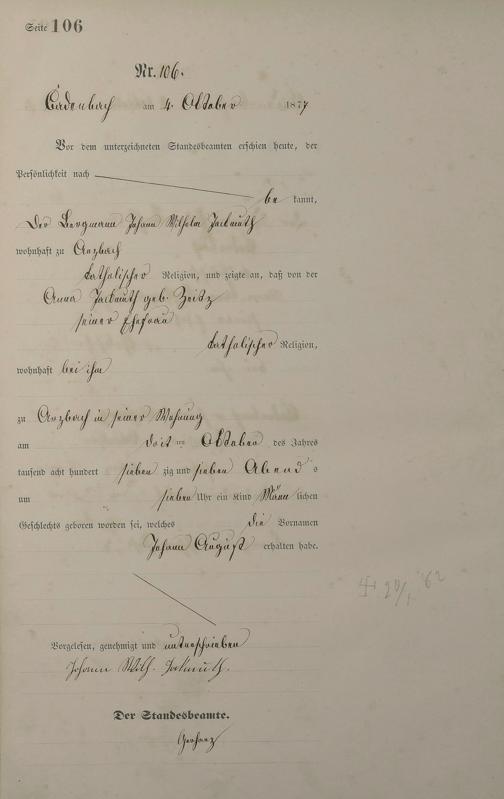 Seite 106
Nr. 106.
Cadenbach am 4. Oktober 1877
Vor dem unterzeichneten Standesbeamten erschien heute, der
Persönlichkeit nach
be kannt,
Der Bergmann Johann Wilhelm Jackmuth
wohnhaft zu Arzbach
katholischer Religion, und zeigte an, daß von der
Anna Jackmuth geb. Zeitz
seiner Ehefrau
katholischer Religion,
wohnhaft bei ihm
zu Arzbach in seiner Wohnung
am Oktober des Jahres
tausend acht hundert sieben zig und sieben Abend s
um sieben Uhr ein Kind Männ lichen
Geschlechts geboren worden sei, welches die Vornamen
Johann August erhalten habe.
Vorgelesen, genehmigt und unterschrieben
Johann Wilh. Jackmuth.
Der Standesbeamte.